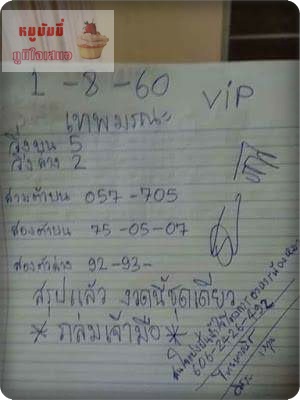 หมูบัมบี่
ภูมิใจเสนอ
1-8-60
VIP
เทพมรณะ
วิ่งบน 5
วิ่งล่าง 2
สามตัวบน 057-705
สองตัวบน 75-05-07
สองตัวล่าง 92-93-
สรุปแล้ว งวดนี้ชุดเดียว
* ถล่มเจ้ามือ *